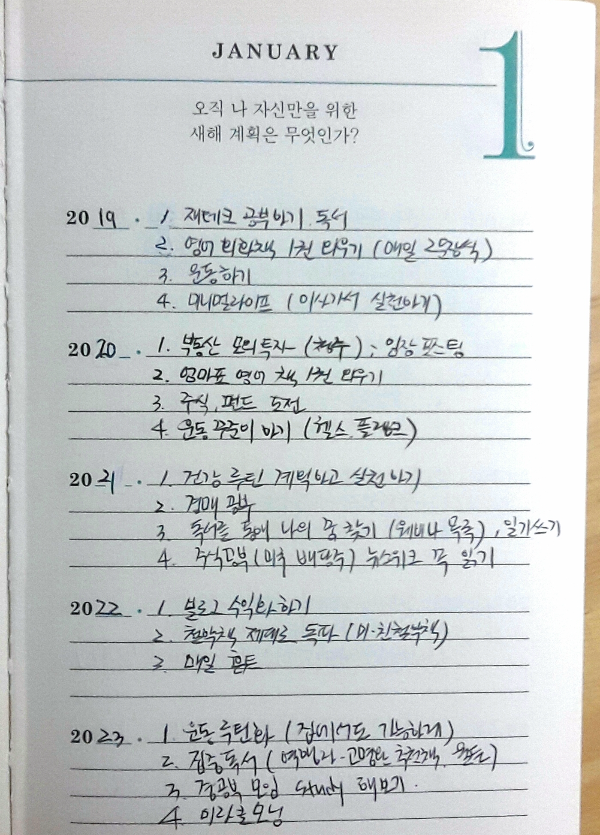 JANUARY
1
오직 나 자신만을 위한
새해 계획은 무엇인가?
2019 · 1. 재테크 공부하기. 독서
2. 영어 회화책 1권 외우기 (매일 2문장씩)
3. 운동하기
4. 미니멀라이프 (이사가서 실천하기)
2020 · 1. 부동산 모의투자 ( ) ; 임장 포스팅
2. 엄마표 영어 책 1권 외우기
3. 주식, 펀드 도전
4. 운동 꾸준히 하기 (헬스, 플랭크)
2021 · 1. 건강 루틴 계획하고 실천하기
2. 경매 공부
3. 독서를 통해 나의 꿈 찾기 (웨비나 목록), 일기쓰기
4. 주식공부 (미국 배당주) 뉴스위크 꼭 읽기
2022 · 1. 블로그 수익화하기
2. 철학책 제대로 독파 ( )
3. 매일 홈트
2023 · 1. 운동 루틴화 (집에서도 가능하게)
2. 집중독서 ( 고명환 추천책, )
3. 경공부 모임 study 해보기.
4. 미라클모닝